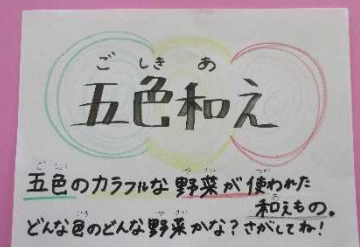 ごしきあ
五色和え
五色のカラフルな野菜が使われた
和えもの。
どんな色のどんな野菜かな?さがしてね!